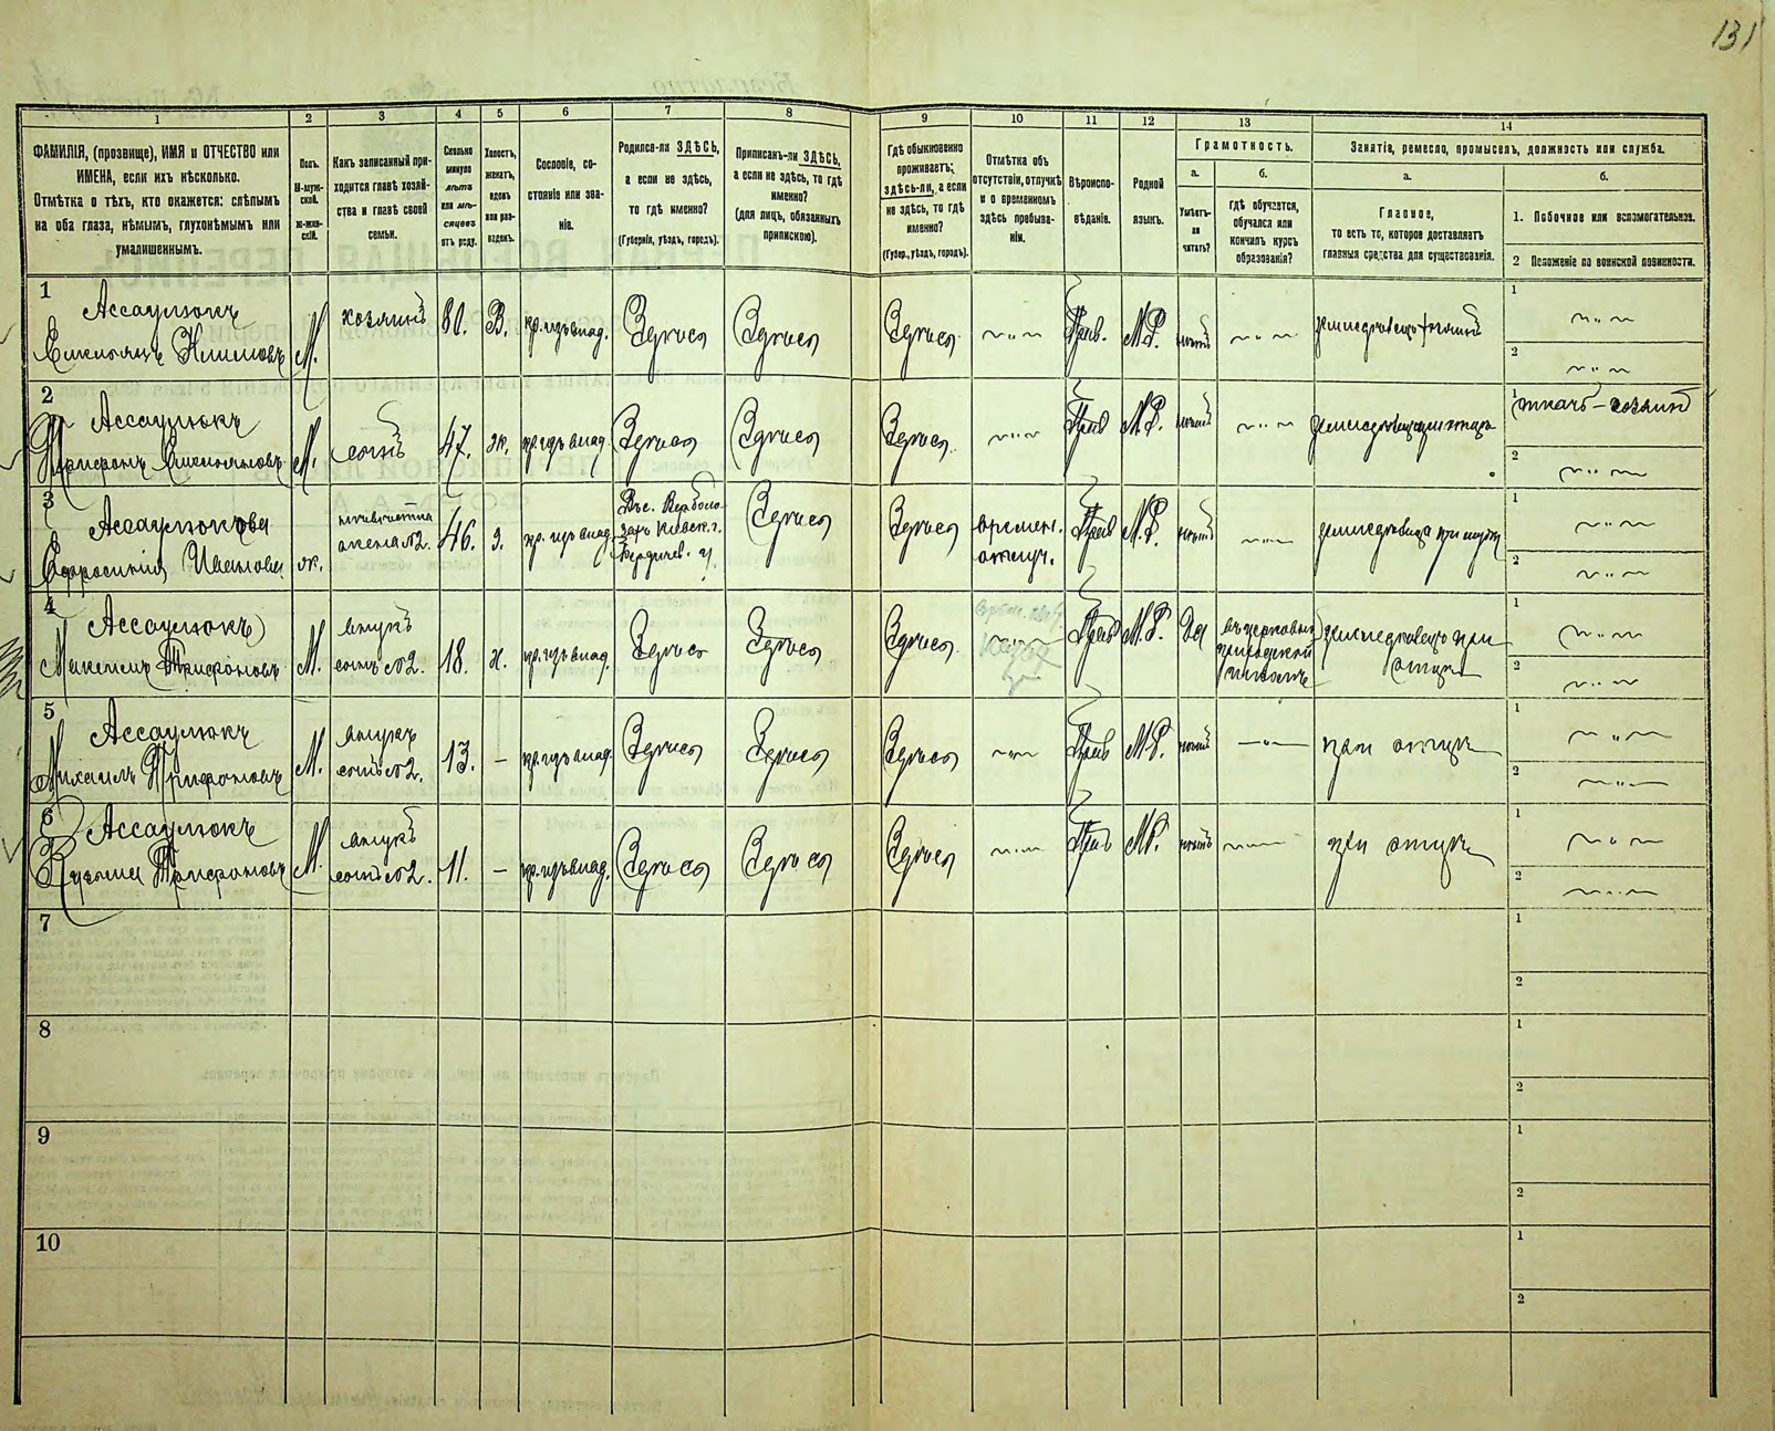 131
1
2
3
4
5
6
7
8
9
10
11
12
13
14
ФАМИЛІЯ, (прозвище), ИМЯ и ОТЧЕСТВО или
ИМЕНА, если ихъ нѣсколько.
Отмѣтка о тѣхъ, кто окажется: слѣпымъ
на оба глаза, нѣмымъ, глухонѣмымъ или
умалишеннымъ.
Полъ.
М-муж-
ской.
Ж-жен-
скій.
Какъ записанный при-
ходится главѣ хозяй-
ства и главѣ своей
семьи.
Сколько
минуло
лѣтъ
или мѣ-
сяцевъ
отъ роду.
Холостъ,
женатъ,
вдовъ
или раз-
веденъ.
Сословіе, со-
стояніе или зва-
ніе.
Родился-ли ЗДѢСЬ,
а если не здѣсь,
то гдѣ именно?
(Губернія, уѣздъ, городъ).
Приписанъ-ли ЗДѢСЬ,
а если не здѣсь, то гдѣ
именно?
(для лицъ, обязанныхъ
припискою).
Гдѣ обыкновенно
проживаетъ:
здѣсь-ли, а если
не здѣсь, то гдѣ
именно?
(Губер., уѣздъ, городъ).
Отмѣтка объ
отсутствіи, отлучкѣ
и о временномъ
здѣсь пребыва-
ніи.
Вѣроиспо-
вѣданіе.
Родной
языкъ.
Грамотность.
а.
Умѣетъ-
ли
читать?
б.
Гдѣ обучается,
обучался или
кончилъ курсъ
образованія?
Занятіе, ремесло, промыселъ, должность или служба.
а.
Главное,
то есть то, которое доставляетъ
главныя средства для существованія.
б.
1. Побочное или вспомогательное.
2 Положеніе по воинской повинности.
1
Ассаулюкъ
Емельянъ Климовъ
М.
хозяинъ
80.
В.
кр. изъ влад.
Здѣсь
Здѣсь
Здѣсь
Прав.
М.Р.
нѣтъ
земледѣлецъ хозяинъ
1
2
2
Ассаулюкъ
Трифонъ Емельяновъ
М.
сынъ
47.
ж.
кр. изъ влад.
Здѣсь
Здѣсь
Здѣсь
Прав
М.Р.
нѣтъ
1
ткачъ - хозяинъ
2
3
Ассаулюкова
Ефросинія Иванова
ж.
невѣстка
жена №2.
46.
З.
кр. изъ влад.
Въ с.
Кіевск. г.
Бердичев. у.
Здѣсь
Здѣсь
времен.
отлуч.
Прав
М.Р.
нѣтъ
земледѣлица при мужѣ
1
2
4
Ассаулюкъ
Максимъ Трифоновъ
М.
внукъ
сынъ №2.
18.
х.
кр. изъ влад.
Здѣсь
Здѣсь
Здѣсь
Прав
М.Р.
Да
въ церковно
приходской
школѣ
земледѣлецъ при
отцѣ
1
2
5
Ассаулюкъ
Михаилъ Трифоновъ
М.
внукъ
сынъ №2.
13.
—
кр. изъ влад.
Здѣсь
Здѣсь
Здѣсь
Прав
М.Р.
нѣтъ
при отцѣ
1
2
6
Ассаулюкъ
Кузьма Трифоновъ
М.
внукъ
сынъ №2.
11.
—
кр. изъ влад.
Здѣсь
Здѣсь
Здѣсь
Прав
М.Р.
нѣтъ
при отцѣ
1
2
7
1
2
8
1
2
9
1
2
10
1
2